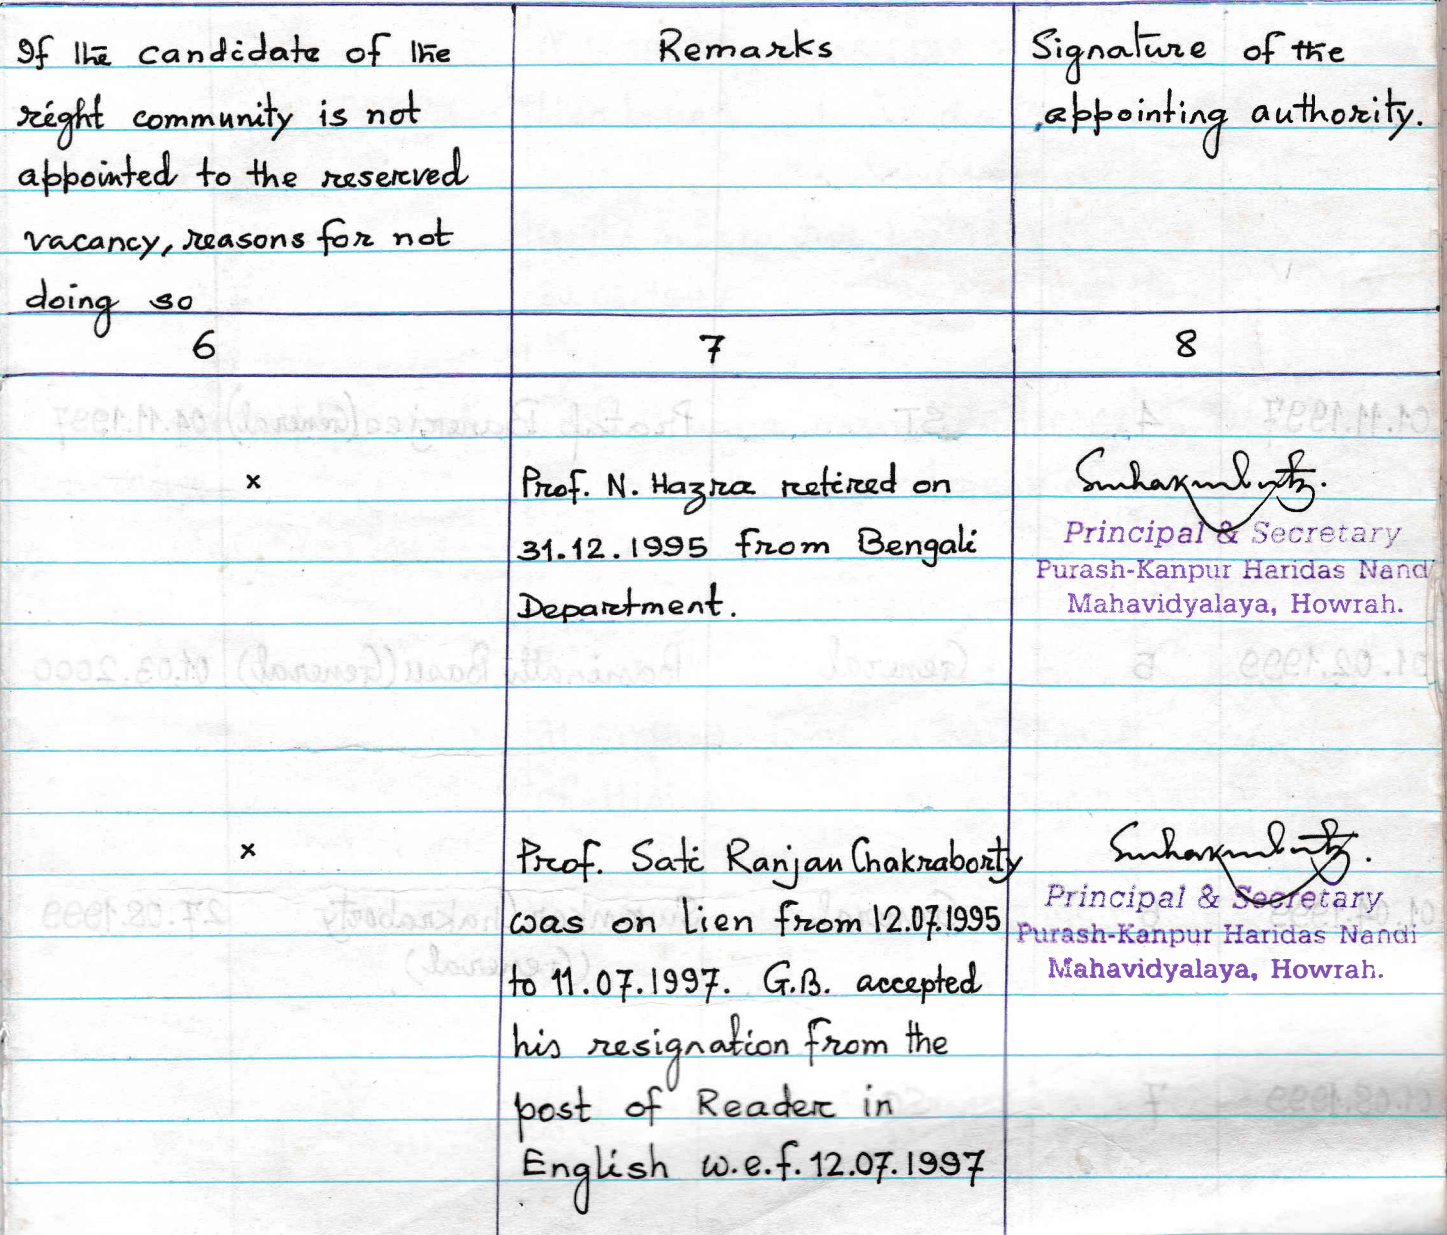 If the candidate of the
right community is not
appointed to the reserved
vacancy, reasons for not
doing so
Remarks
Signature of the
appointing authority.
6
7
8
x
Prof. N. Hazra retired on
31.12.1995 from Bengali
Department.
Principal & Secretary
Purash-Kanpur Haridas Nandi
Mahavidyalaya, Howrah.
x
Prof. Sati Ranjan Chakraborty
was on lien from 12.07.1995
to 11.07.1997. G.B. accepted
his resignation from the
post of Reader in
English w.e.f. 12.07.1997
Principal & Secretary
Purash-Kanpur Haridas Nandi
Mahavidyalaya, Howrah.